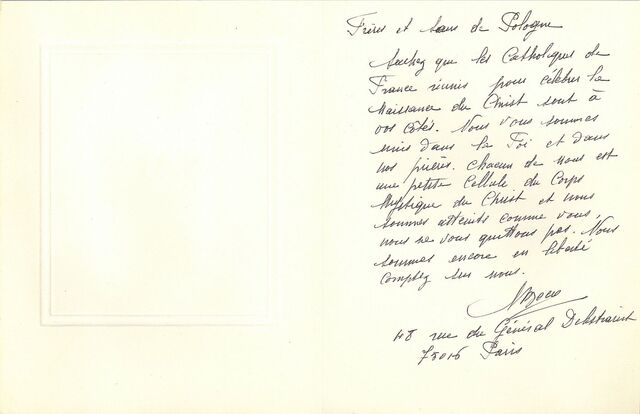 Frères et Sœurs de Pologne
Sachez que les Catholiques de
France réunis pour célébrer la
Naissance du Christ sont à
vos côtés. Nous vous sommes
unis dans la Foi et dans
nos prières. Chacun de nous est
une petite Cellule du Corps
Mystique du Christ et nous
sommes atteints comme vous,
nous ne vous quittons pas. Nous
sommes encore en liberté
comptez sur nous.
48 rue du Général Delestraint
75016 Paris